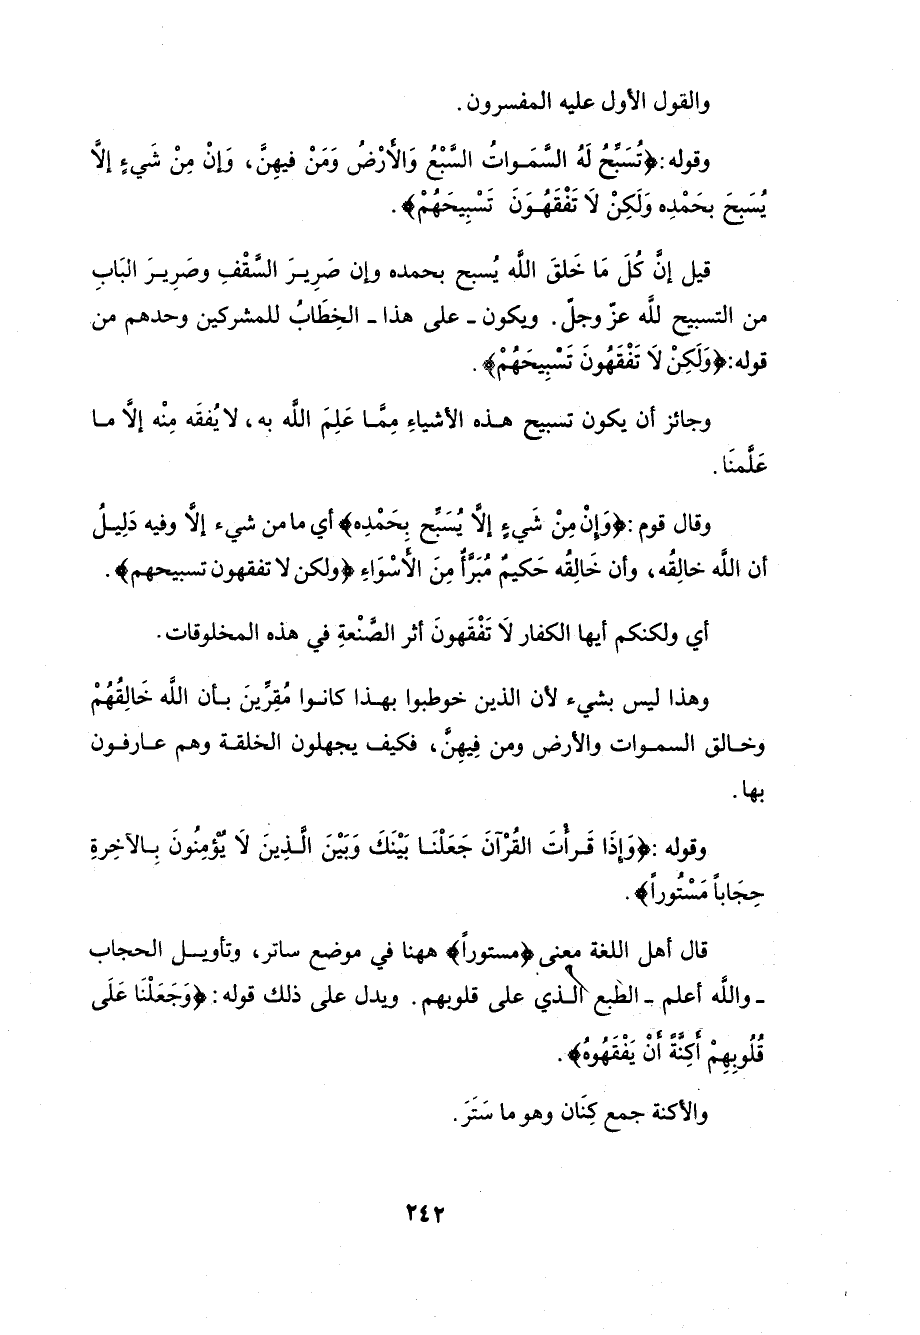 والقول الأول عليه المفسرون .
وقوله :﴿تُسَبِّحُ لَهُ السَّمَـواتُ السَّبْعُ وَالأَرْضُ وَمَنْ فيهِنَّ، وَإنْ مِنْ شَيءٍ إلاَّ
يُسَبحَ بحَمْدِه وَلَكِنْ لاَ تَفْقَهُـونَ تَسْبِيحَهُمْ﴾ .
قيل إنَّ كُلَ مَا خَلقَ اللَّه يُسبح بحمده وإن صَرِيـرَ السَّقْفِ وصَرِيـرَ البَابِ
من التسبيح للَّه عزّ وجلّ. ويكون ـ على هذا ـ الخِطَابُ للمشركين وحدهم من
قوله :﴿وَلَكِنْ لاَ تَفْقَهُونَ تَسْبِيحَهُمْ﴾ .
وجائز أن يكون تسبيح هـذه الأشياءِ مِمَّـا عَلِمَ اللَّه به، لا يُفقَه مِنْه إلاَّ مـا
عَلَّمنَا .
وقال قوم :﴿وَإِنْ مِنْ شَيءٍ إلاَّ يُسَبِّح بِحَمْدِه﴾ أي ما من شيء إلاَّ وفيه دَلِيـلُ
أن اللَّه خالِقُه، وأن خَالِقُه حَكيمٌ مُبَرَّأٌ مِنَ الأَسْوَاءِ ﴿ولكن لا تفقهون تسبيحهم﴾ .
أي ولكنكم أيها الكفار لاَ تَفْقَهونَ أثر الصَّنْعةِ في هذه المخلوقات .
وهذا ليس بشيء لأن الذين خوطبوا بهـذا كانـوا مُقِرِّينَ بـأن اللَّه خَالِقُهُمْ
وخـالق السمـوات والأرض ومن فِيهِنَّ، فكيف يجهلون الخلقـة وهم عـارفـون
بها .
وقوله :﴿وَإِذَا قَـرأْتَ القُرْآنَ جَعَلْنَـا بَيْنَكَ وَبَيْنَ الَّـذِينَ لاَ يُؤْمِنُونَ بِـالآخِرةِ
حِجَاباً مَسْتُوراً﴾ .
قال أهل اللغة معنى ﴿مستوراً﴾ ههنا في موضع ساتر، وتأويـل الحجاب
ـ واللَّه أعلم ـ الطبع الـذي على قلوبهم. ويدل على ذلك قوله: ﴿وَجَعَلْنَا عَلَى
قُلُوبِهِمْ أَكِنَّةً أَنْ يَفْقَهُوهُ﴾ .
والأكنة جمع كِنَان وهو ما سَتَرَ .
٢٤٢